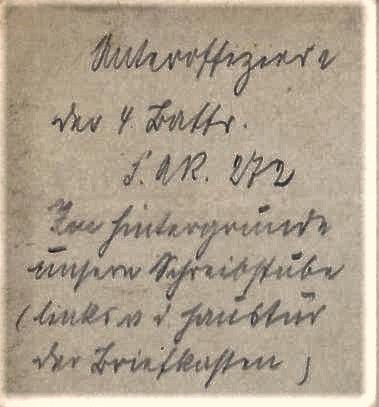 Unteroffiziere
der 4 Battr.
F. AR. 272
Im Hintergrunde
unsere Schreibstube
(links v d Haustür
der Briefkasten)